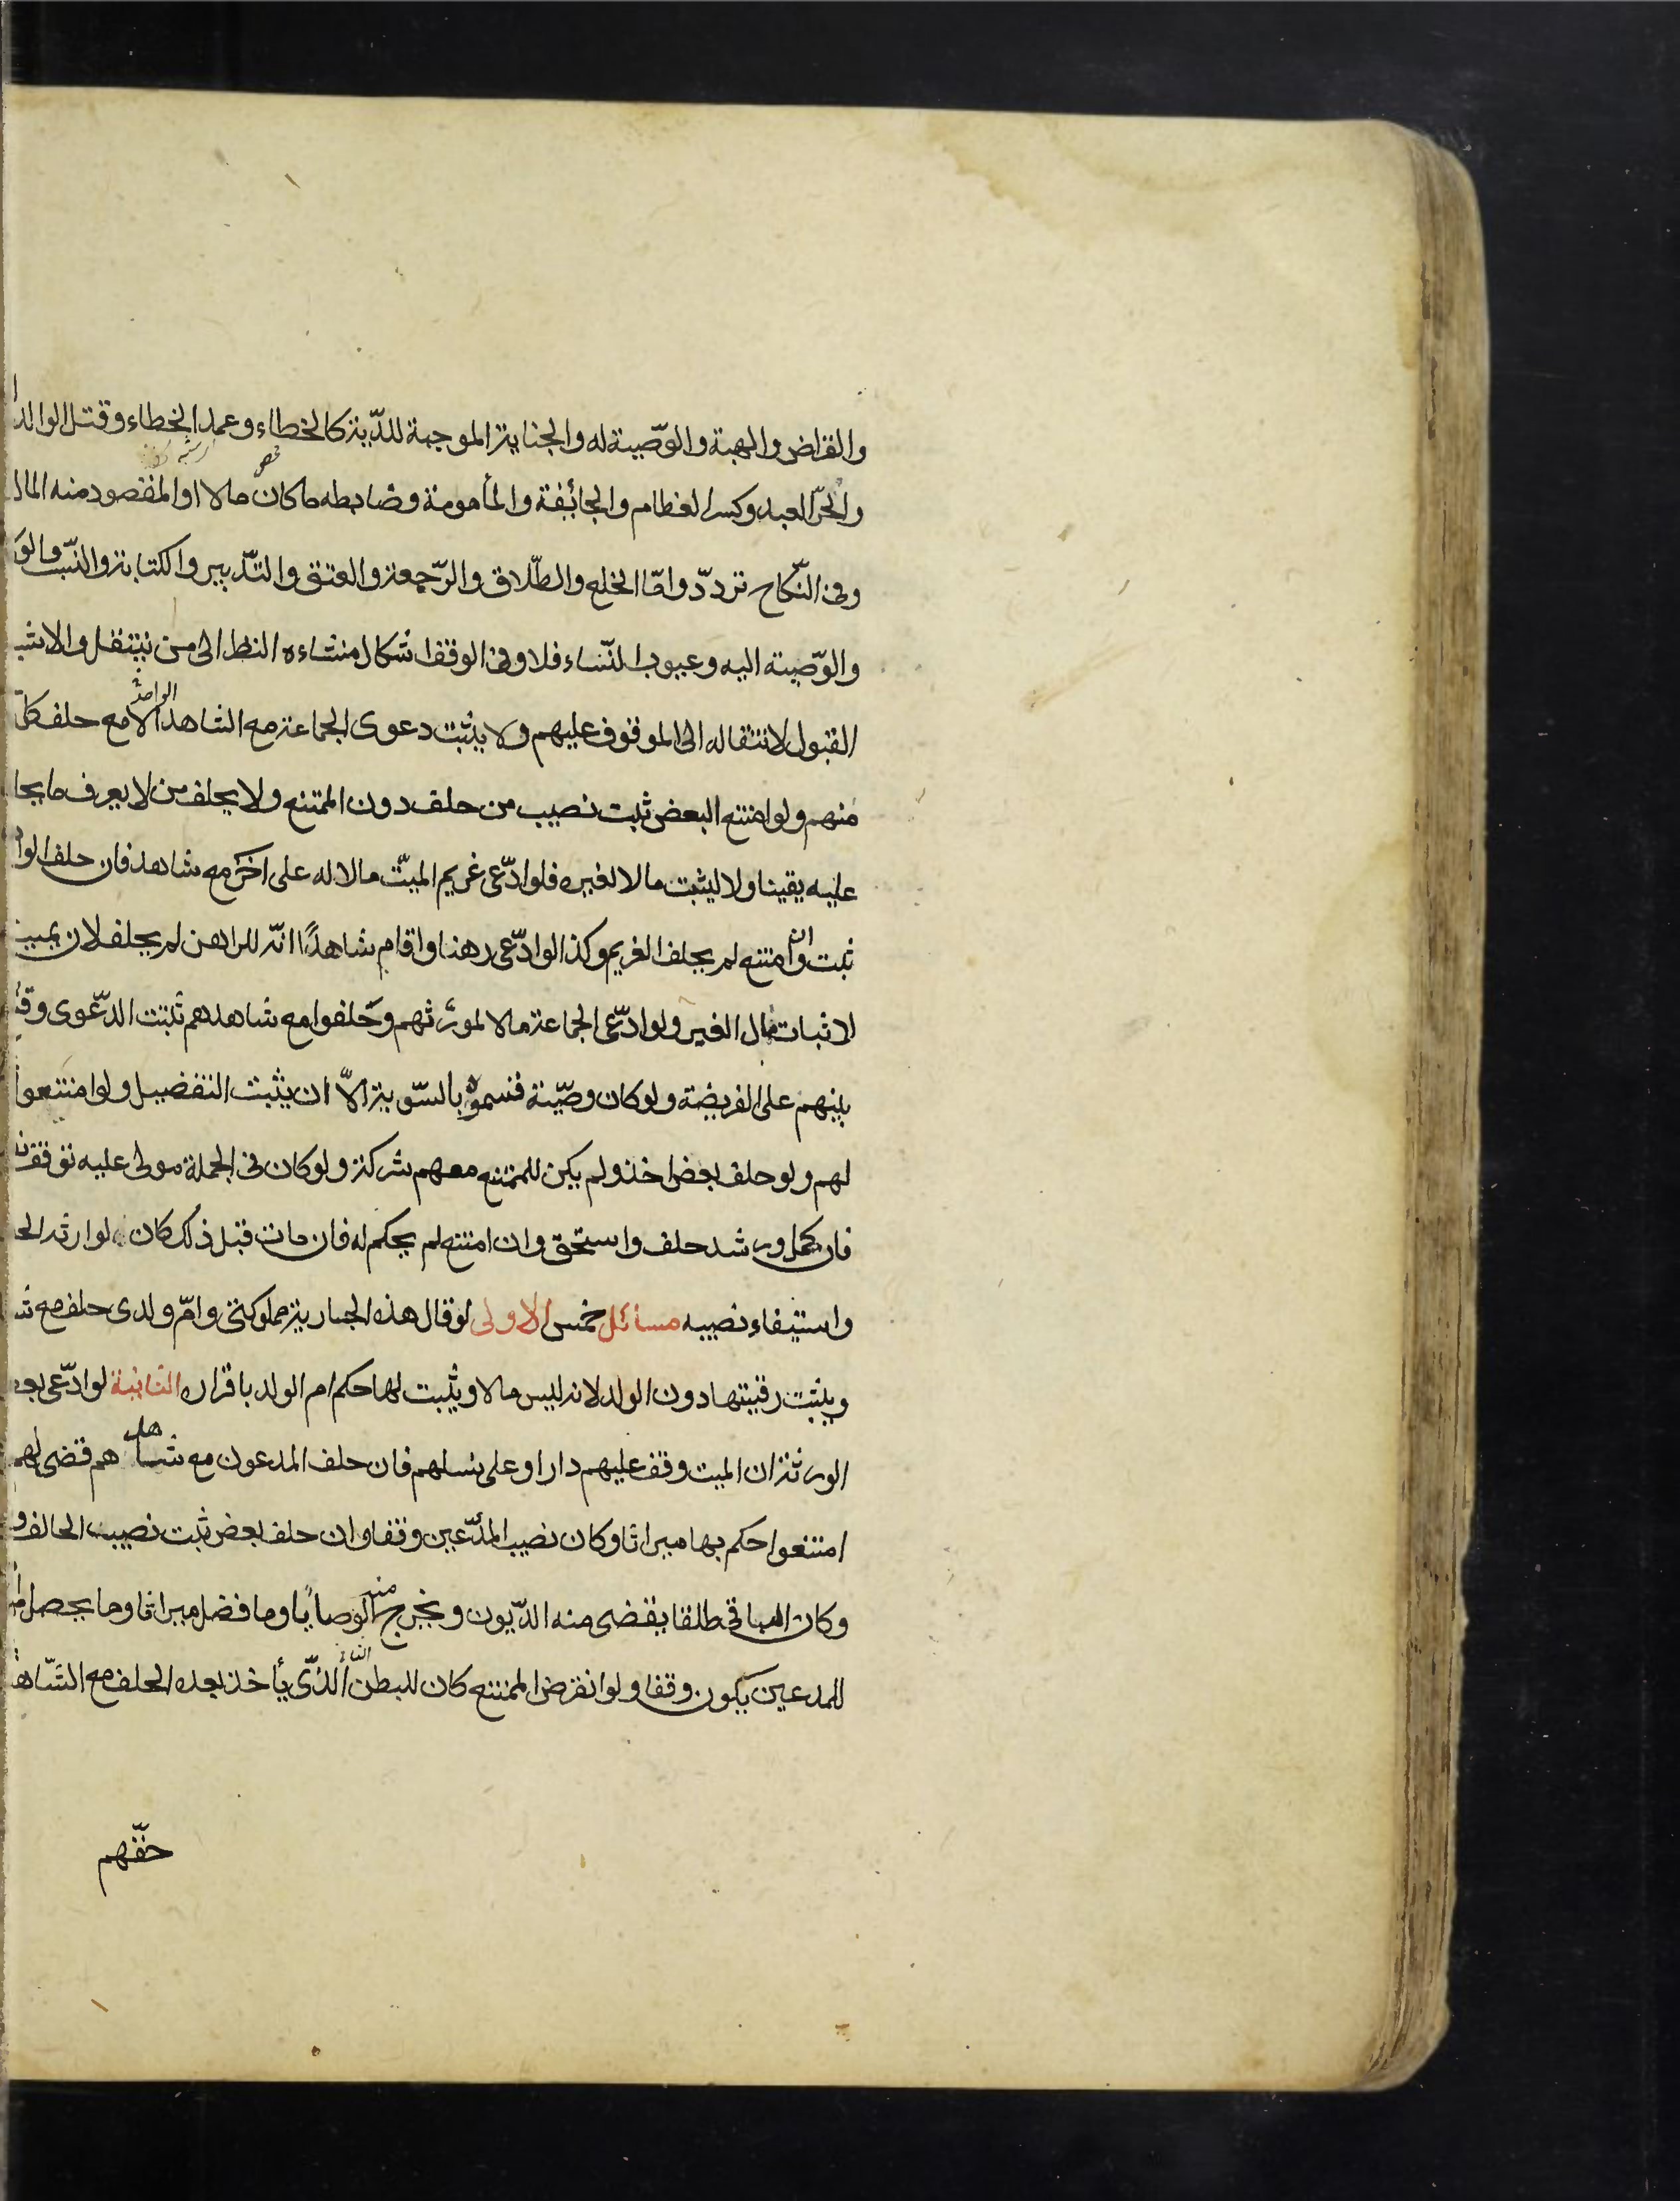 والقراض والهبة والوصّية له والجناية الموجبة للدّية كالخطاء وعمد الخطاء وقتل الوالد
والحرّ العبد وكسر العظام والجائفة والمأمومة وضابطه ما كان مالا او المقصود منه المال
وفى النّكاح تردّد وامّا الخلع والطّلاق والرّجعة والعتق والتّدبير والكتابة والنّسب والو
والوّصية اليه وعيوب النّساء فلا وفى الوقف اشكال منشاءه النظر الى من ينتقل والاشبـ
القبول لانتقاله الى الموقوف عليهم ولا يثبت دعوى الجماعة مع الشاهد الواحد الا مع حلف كلّ
منهم ولو امتنع البعض ثبت نصيب من حلف دون الممتنع ولا يحلف من لا يعرف ما يحلـ
عليه يقينا ولا ليثبت مالا لغيره فلو ادّعى غريم الميّت مالا له على اخر مع شاهد فان حلف الوا
ثبت وان امتنع لم يحلف الغريم وكذا لو ادّعى رهنا واقام شاهدًا انّه للراهن لم يحلف لان يمينـ
لاثبات مال الغير ولو ادّعى الجماعة مالا لمورثهم وحلفوا مع شاهدهم ثبتت الدّعوى وقـ
بينهم على الفريضة ولو كان وصيّة قسموه بالسّوية الاّ ان يثبت التفضيل ولو امتنعوا
لهم ولو حلف بعض اخذ ولم يكن للممتنع معهم شركة ولو كان فى الجملة مولى عليه توقف نـ
فان كمل ورشد حلف واستحق وان امتنع لم يحكم له فان مات قبل ذلك كان لوارثه الحـ
واستيفاء نصيبه مسائل خمس الاولى لو قال هذه الجارية مملوكتى وامّ ولدى حلف مع شـ
ويثبت رقيتها دون الولد لانه ليس مالا ويثبت لها حكم ام الولد باقراره الثانية لو ادّعى بعـ
الورثة ان الميت وقف عليهم دارا وعلى نسلهم فان حلف المدعون مع شاهدهم قضى لهم
امتنعوا حكم بها ميراثا وكان نصيب المدّعين وقفا وان حلف بعض ثبت نصيب الحالف و
وكان الباقى طلقا يقضى منه الدّيون ويخرج منه الوصايا وما فضل ميراثا وما يحصل
للمدعين يكون وقفا ولو انقرض الممتنع كان للبطن الذّى يأخذ بعده الحلف مع الشّاهـ
حقّهم